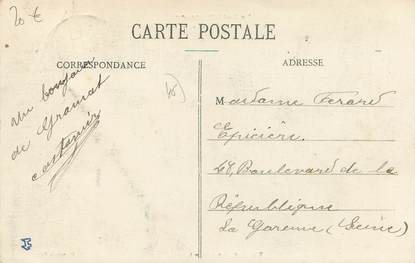 20 €
CARTE POSTALE
CORRESPONDANCE
ADRESSE
Un bonjour
de Gramat
Madame Ferard
Epicière
48, Boulevard de la
République
La Garenne (Seine)